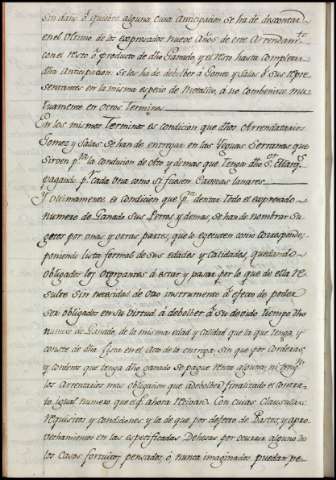 sin daño ó quiebra alguna cuia Anticipacion se ha de descontar
en el Ultimo de los expresados nueve años de este Arrendam.to
con el resto ó producto de dho Ganado y el resto hasta completar
dha Anticipacion se les ha de debolber a Gomez y Salas ó sus repre
sentantes en la misma especie de Metalico, á no combenirse mu
tuamente en otros Terminos
En los mismos Terminos es condicion que dhos Arrendatarios
Gomez y Salas se han de entregar en las Yeguas Serranas que
sirven p.ra la conducion de ato y demas que tenga dho S.or Marq.s
pagando p.r cada una como si fuesen Carneas lanares
Y ultimamente es condicion que p.ra dentar todo el expresado
numero de Ganado sus Perros y demas, se han de nombrar Su
getos por una y otras partes, que lo egecuten como correspondey
poniendo lista formal de sus edades y Calidades, quedando
obligados los otorgantes á estar y pasar por lo que de ella re
sulte sin necesidad de otro instrumento á efecto de poder
ser obligados en su virtud á debolber á su devido tiempo dho
numero de Ganado, de la misma edad y calidad que la que tenga, y
conste de dha lista en el Acto de la entrega sin que por corderas
y corderos que tenga dho ganado se pague renta alguna; ni tengan
los Arrentarios mas obligacion que á debolber finalizado el contra
to, igual numero que el q.e ahora reciban. Con cuias Clausulas
requisitos y condiciones y la de que por defecto de Pastos, y apro
vechamientos en las especificadas Dehesas por ocurrir alguno de
los Casos fortuitos pensados, ó nunca imaginados puedan pe